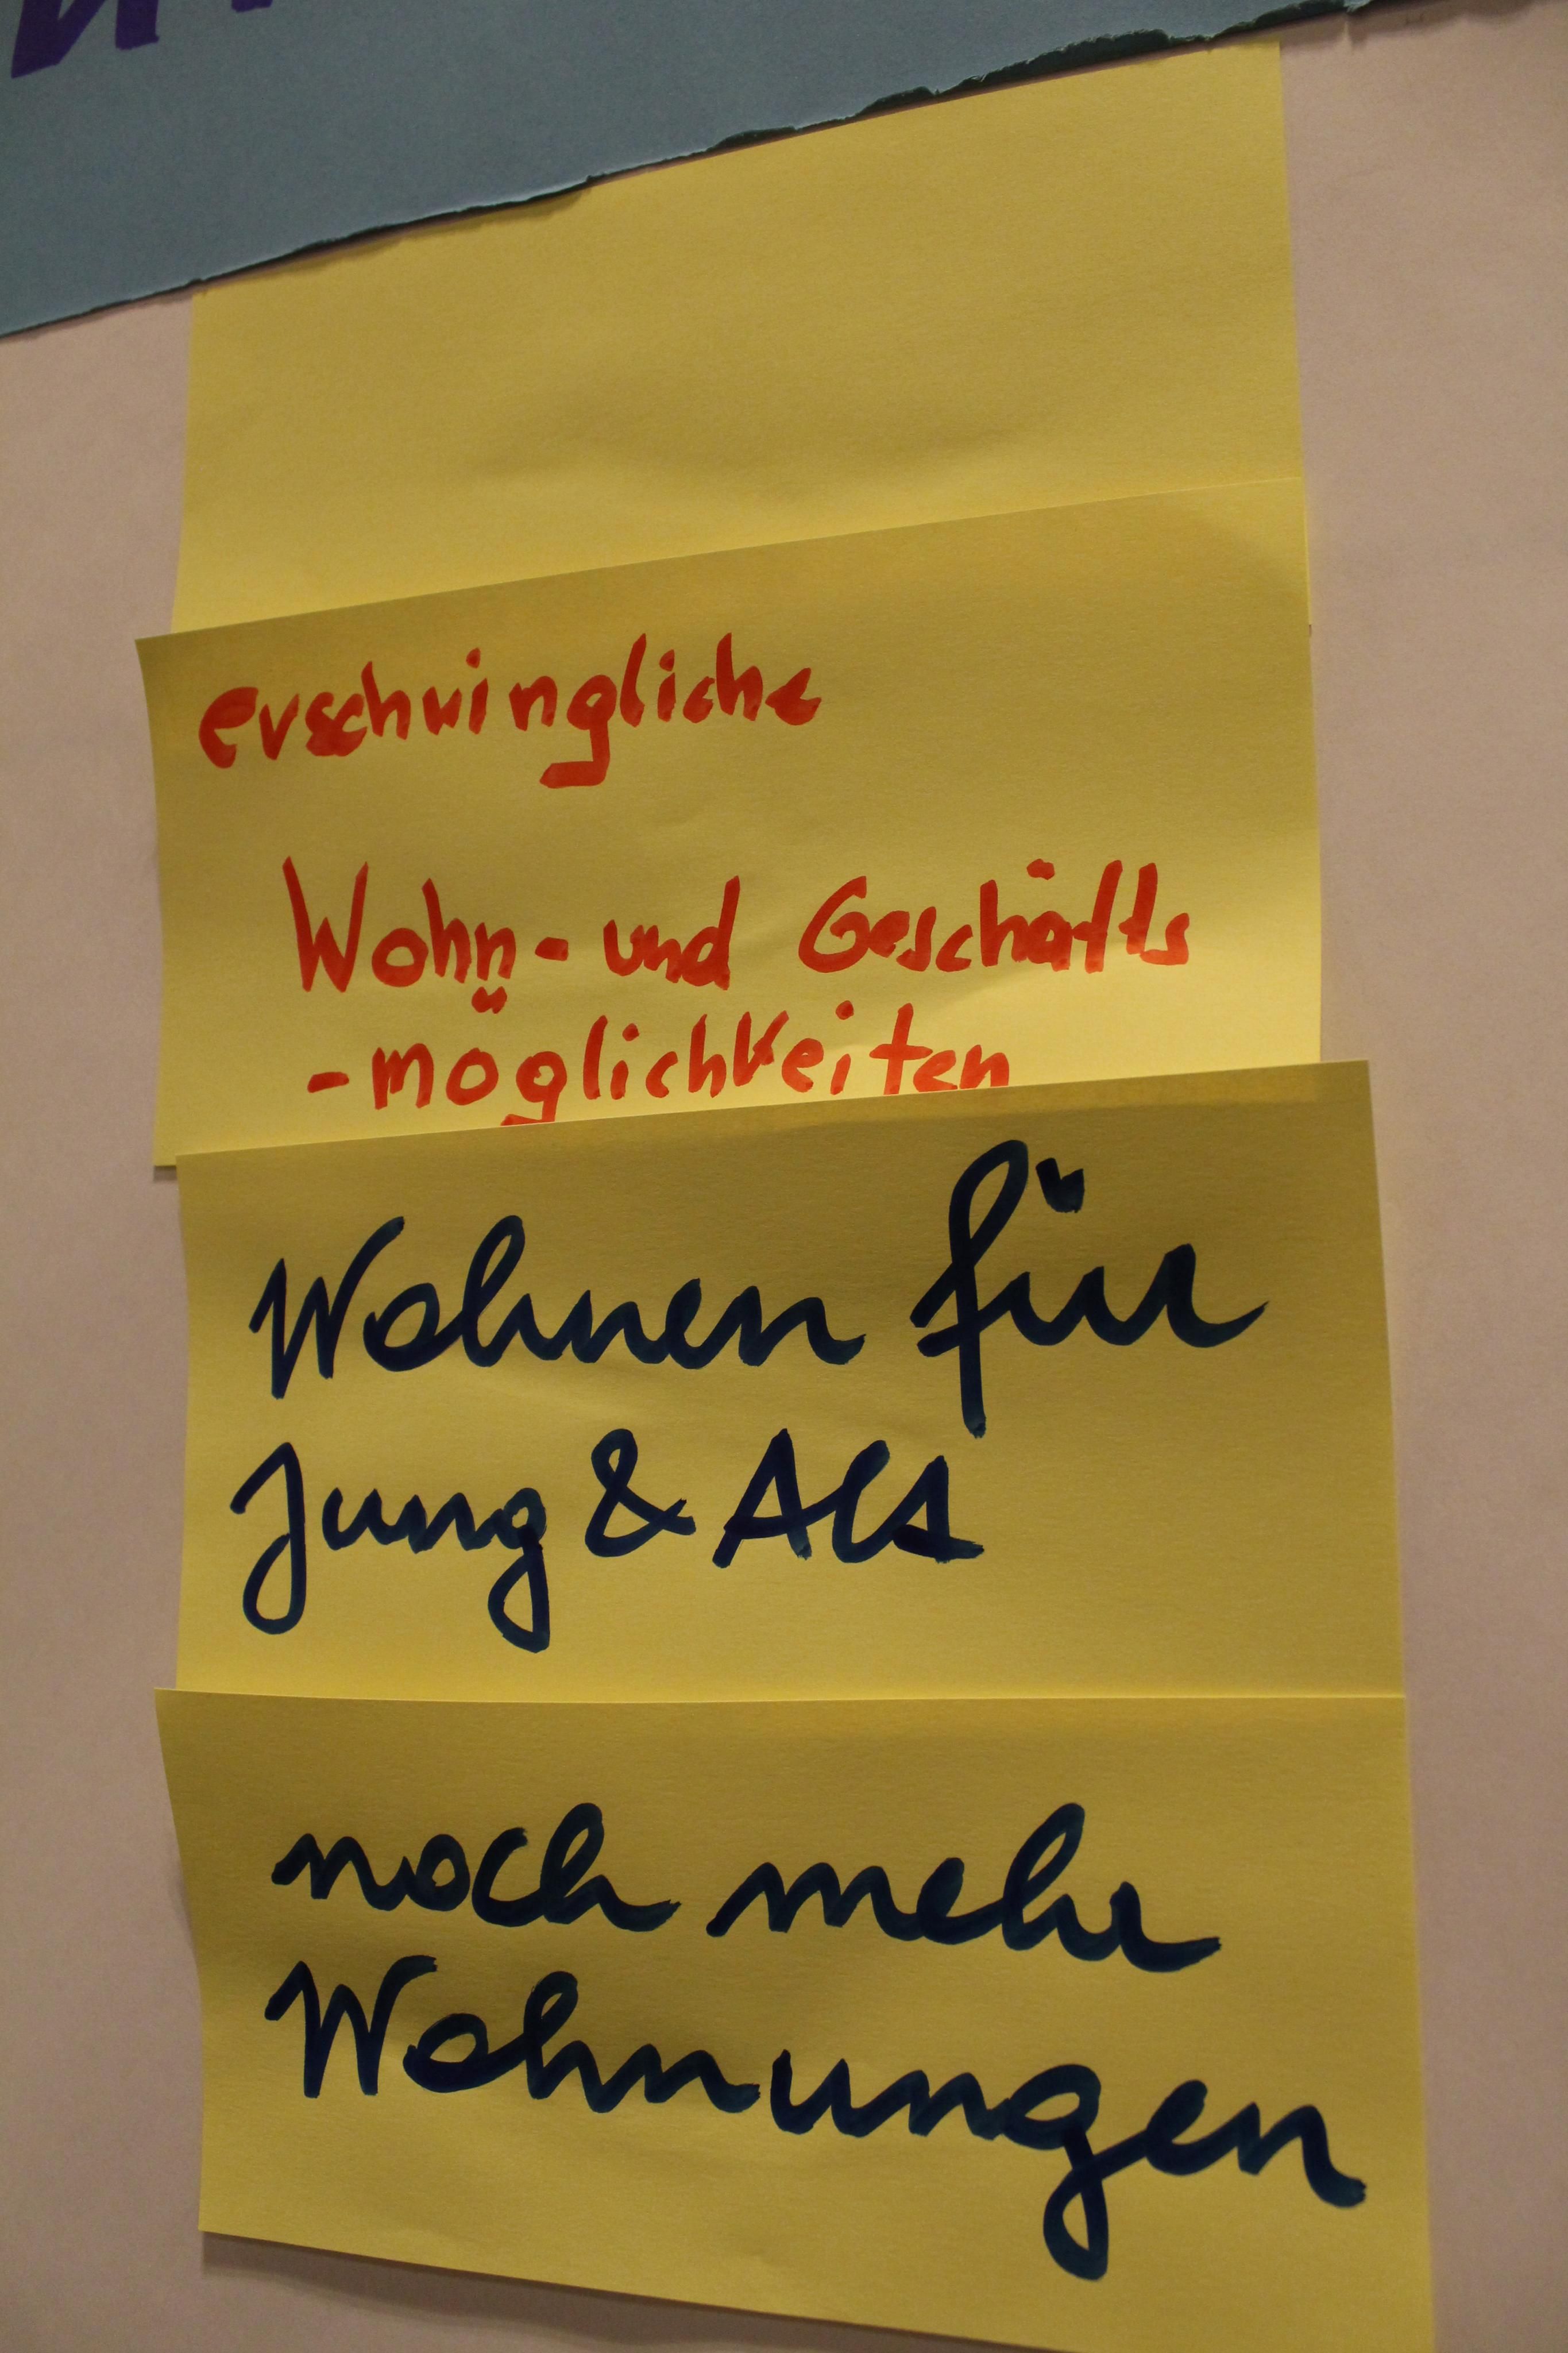 erschwingliche
Wohn- und Geschäfts
-möglichkeiten
Wohnen für
Jung & Alt
noch mehr
Wohnungen